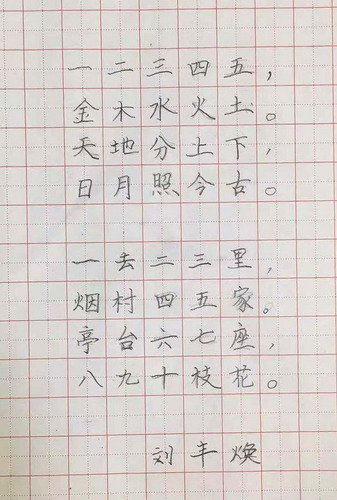 一二三四五，
金木水火土。
天地分上下，
日月照今古。
一去二三里，
烟村四五家。
亭台六七座，
八九十枝花。
刘丰焕